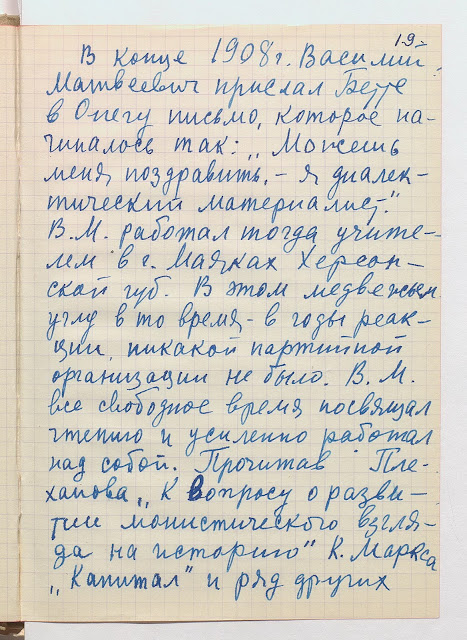 19.
В конце 1908 г. Василий
Матвеевич прислал Бетте
в Онегу письмо, которое на-
чиналось так: „Можешь
меня поздравить, – я диалек-
тический материалист."
В. М. работал тогда учите-
лем в г. Маяках Херсон-
ской губ. В этом медвежьем
углу в то время – в годы реак-
ции, никакой партийной
организации не было. В. М.
все свободное время посвящал
чтению и усиленно работал
над собой. Прочитав Пле-
ханова „К вопросу о разви-
тии монистического взгля-
да на историю" К. Маркса
„Капитал" и ряд других